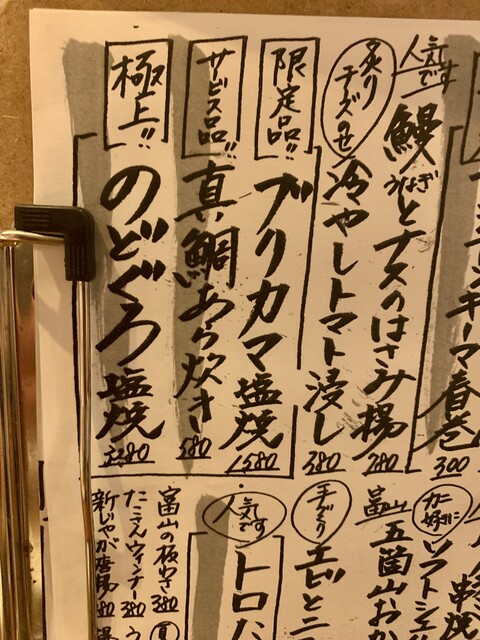 キーマ春巻
300
人気です
鰻とナスのはさみ揚
うなぎ
280
炙りチーズのせ
冷やしトマト浸し
380
限定品!!
ブリカマ塩焼
1580
サービス品!!
真鯛あら炊き
580
極上!!
のどぐろ塩焼
3280
串焼
カニ好きに
ソフトシェ
富山
五箇山お
手づくり
エビとニ
人気です
トロ
富山の
380
たこさんウィンナー
380
新じゃが
80